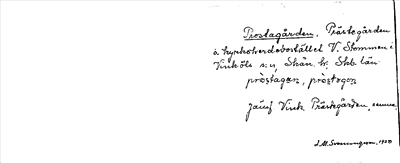 Prostagården, Prästgården
å kyrkoherdebostället V. Stommen i
Vinköls sn, Skån. hd. Skb. län
pròstagan, pròstogɔn
Jämf Vink Prästegården, samma
J.M. Svenningson, 1930